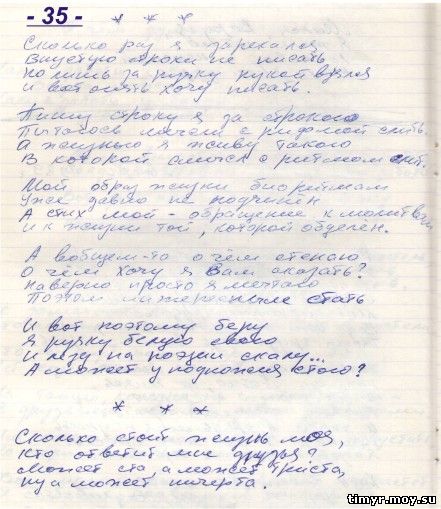 - 35 -
* * *
Сколько раз я зарекался
Впустую строки не писать
Но лишь за ручку рукой взялся
И вот опять хочу писать.
Пишу строку я за строкою
Пытаюсь мячем с рифмой слить.
А жизнью я живу такою
В которой смысл с ритмом
Мой образ жизни биоритмам
Уже давно не подчинён
А стих мой - обращение к молитвам
И к жизни той, которой обделён.
А вобщем-то о чём стенаю
О чём хочу я Вам сказать?
Наверно просто я мечтаю
Поэтом стать
И вот поэтому беру
Я ручку белую свою
И лезу на поэзии скалу...
А может у подножия стою?
* * *
Сколько стоит жизнь моя,
Кто ответит мне друзья?
Может ста, а может триста,
Ну а может ничерта.
timyr.moy.su